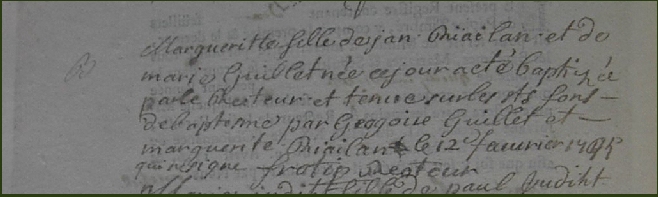 B
Margueritte fille de jan Priailan et de
marie Guillet née ce jour a été baptizée
par le Recteur et tenue sur les sts fons
de baptesme par Greggoire Guillet et
marguerite Priailant le 12e fauvrier
qui ne signe frotin Recteur
fille de paul Judiht